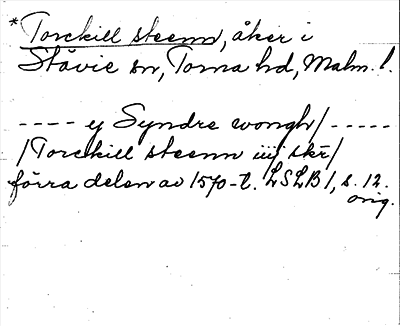 *Torckill steenn, åker i
Stävie sn, Torna hd, Malm. l.
---- ey Syndre wongh/ -----
/Torckill steenn iiij skr/
förra delen av 1570-t. LSLB 1, s. 12.
orig.